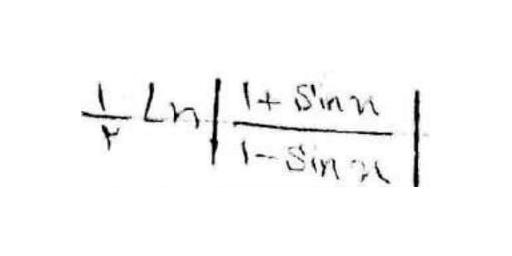 ۱/۲ Ln | (1 + Sin x) / (1 - Sin x) |